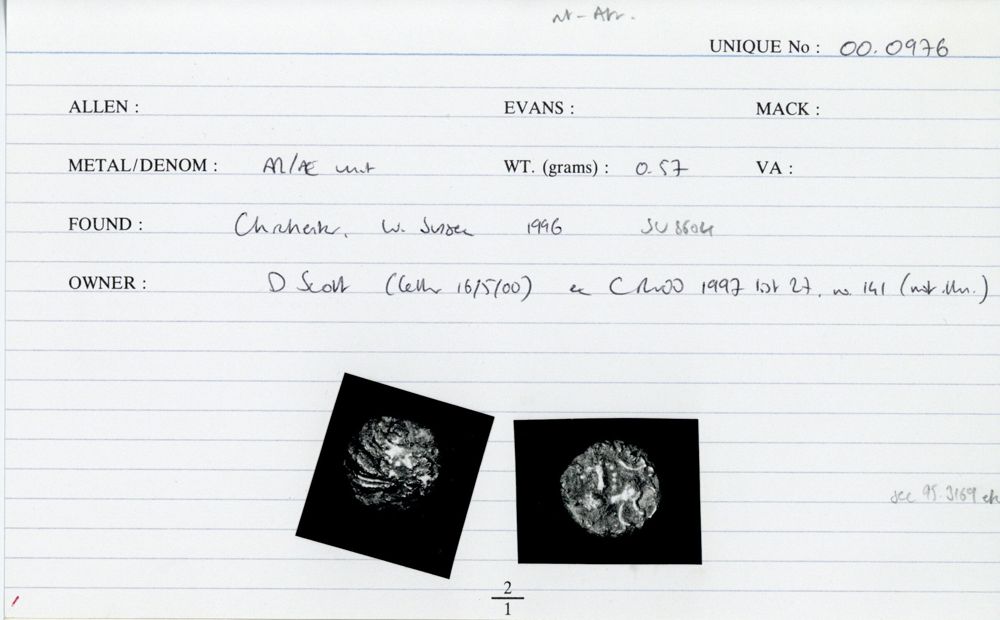 UNIQUE No : 00.0976
ALLEN : EVANS : MACK :
METAL/DENOM : AR/Æ unit WT. (grams) : 0.57 VA :
FOUND : Chichester, W. Sussex 1996 SU 8604
OWNER : D Scott (letter 16/5/00) ex CR 1997 list 27, no. 141 (not illus.)
see 95.3169 etc
2
1